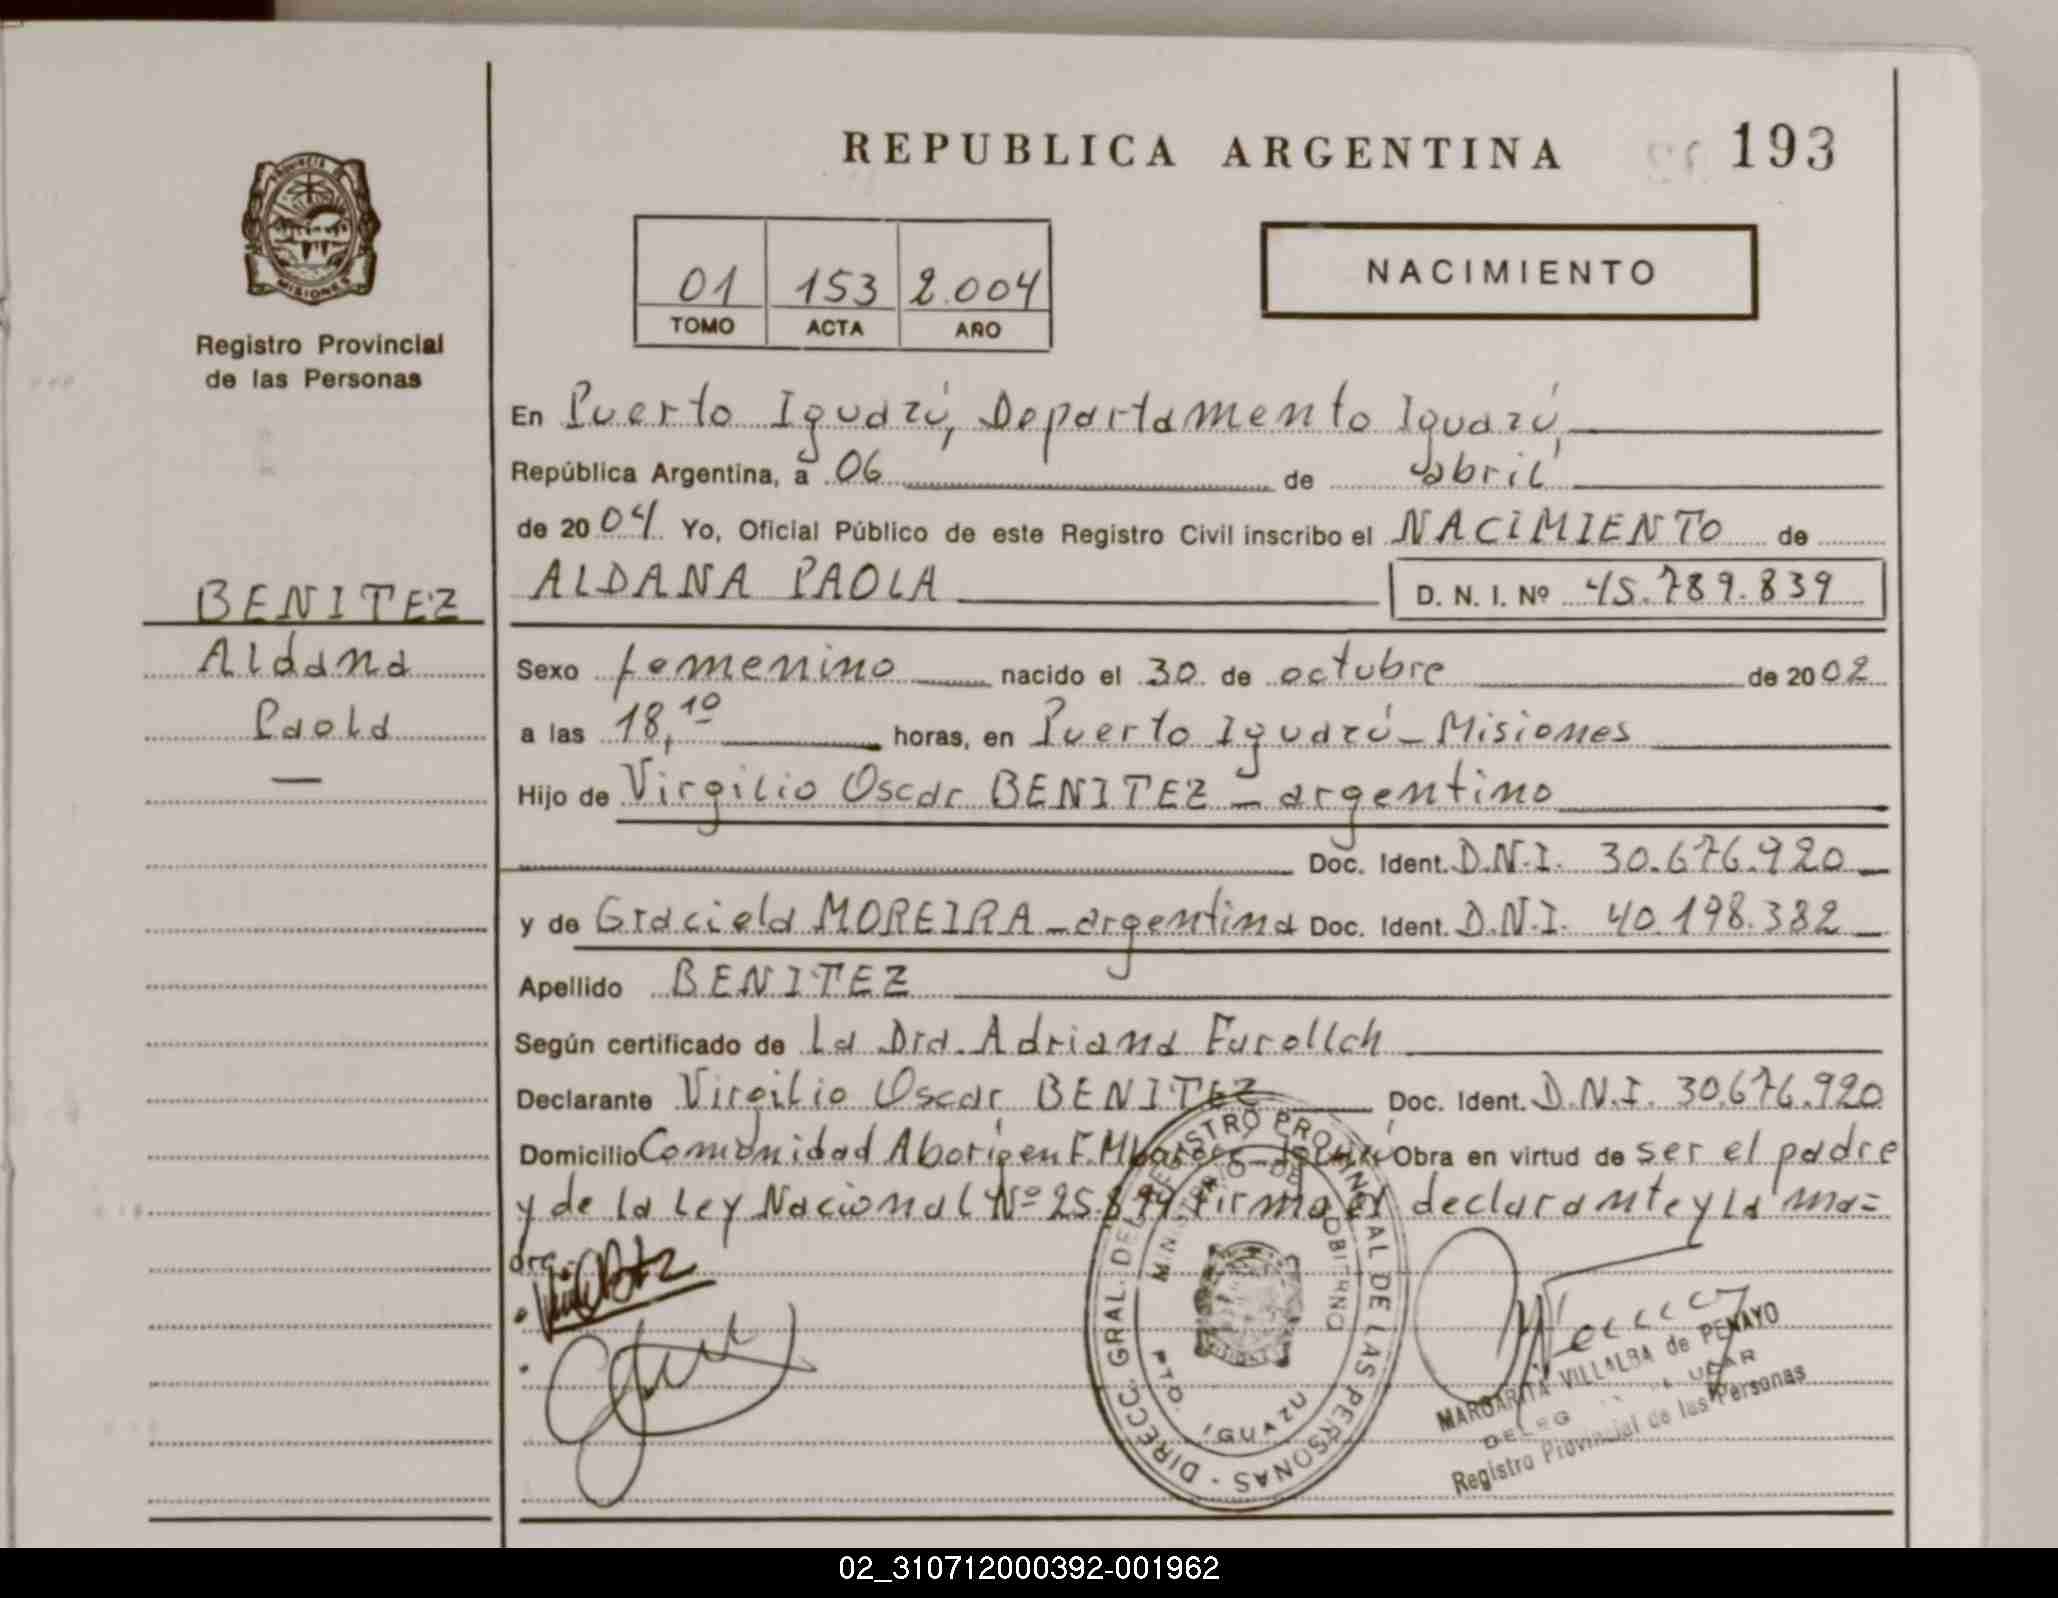 REPUBLICA ARGENTINA
193
PROVINCIA DE
MISIONES
Registro Provincial
de las Personas
01 153 2.004
TOMO ACTA AÑO
NACIMIENTO
En Puerto Iguazú, Departamento Iguazú,
República Argentina, a 06 de abril
de 2004 Yo, Oficial Público de este Registro Civil inscribo el NACIMIENTO de
ALDANA PAOLA D. N. I. Nº 45.789.839
BENITEZ
Aldana
Paola
Sexo femenino nacido el 30 de octubre de 2002
a las 18,10 horas, en Puerto Iguazú - Misiones
Hijo de Virgilio Oscar BENITEZ - argentino
Doc. Ident. D.N.I. 30.676.920
y de Graciela MOREIRA - argentina Doc. Ident. D.N.I. 40.198.382
Apellido BENITEZ
Según certificado de La Dra. Adriana
Declarante Virgilio Oscar BENITEZ Doc. Ident. D.N.I. 30.676.920
Domicilio Comunidad Aborigen F. Obra en virtud de ser el padre
y de la Ley Nacional Nº firma el declarante y la ma=
dre.
DIRECC. GRAL. DEL REGISTRO PROVINCIAL DE LAS PERSONAS
MINISTERIO DE GOBIERNO
PTO. IGUAZU
MARGARITA VILLALBA de PENAYO
Registro Provincial de las Personas
02_310712000392-001962